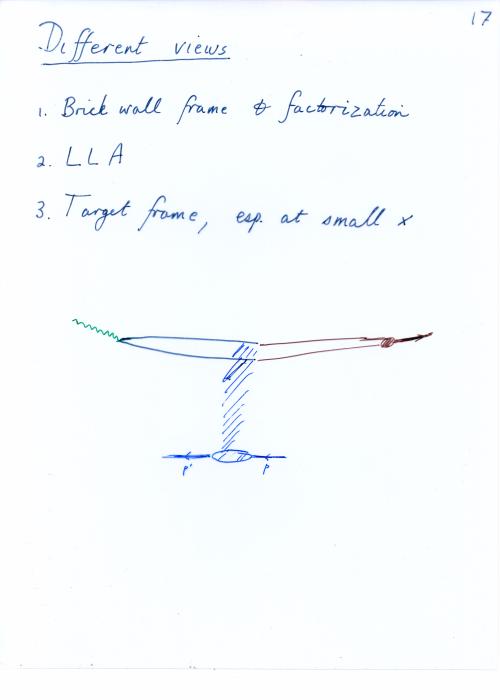 17
Different views
1. Brick wall frame & factorization
2. LLA
3. Target frame, esp. at small x
p' p